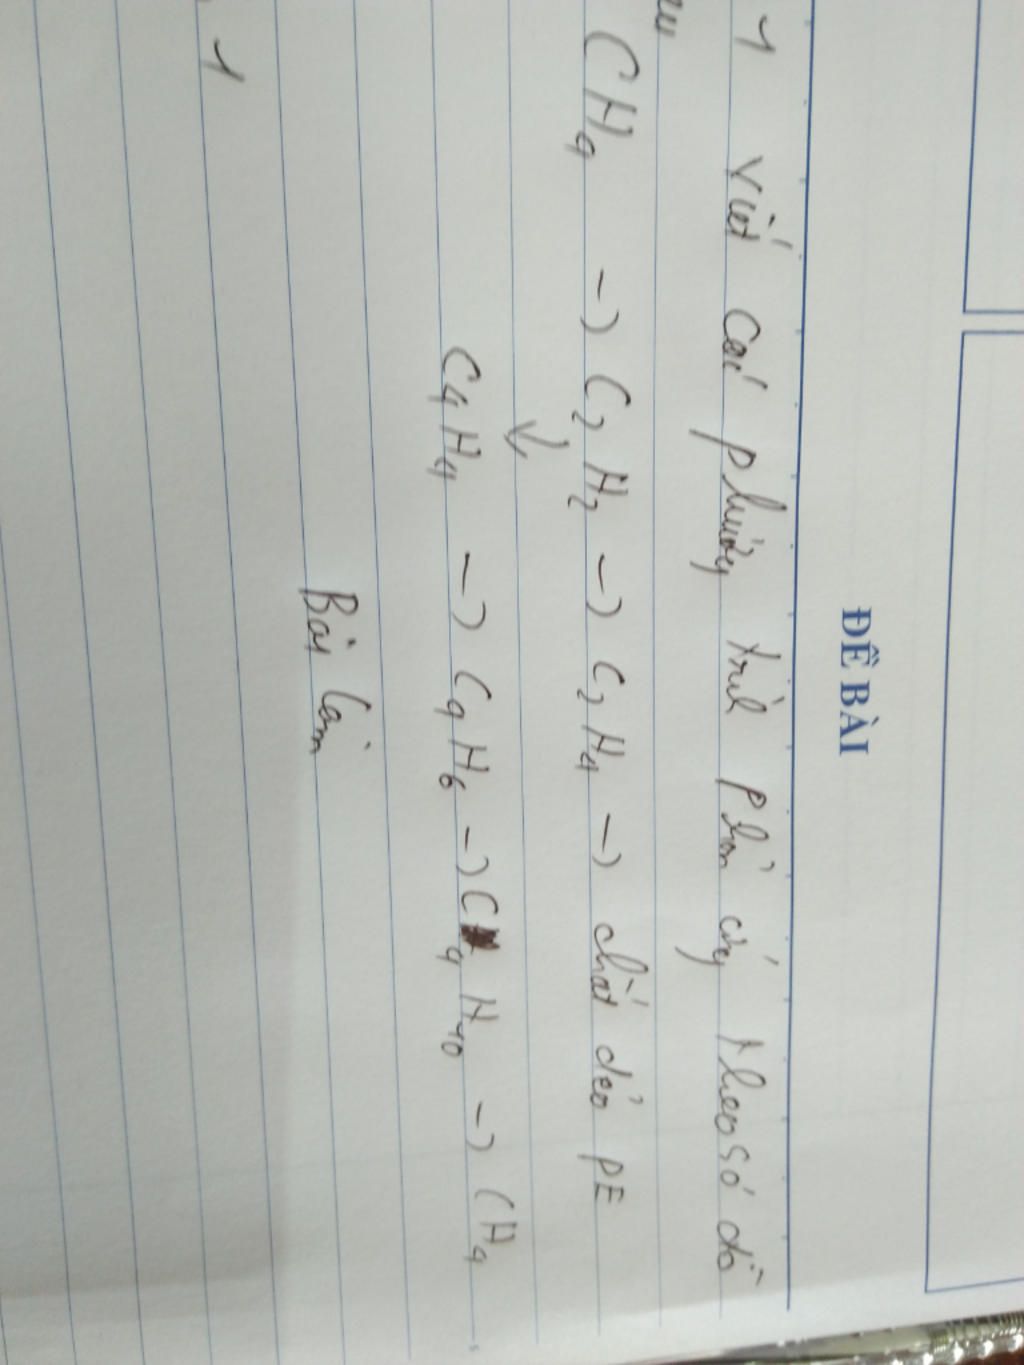 ĐỀ BÀI
1 Viết các phương trình phản ứng theo sơ đồ
sau
CH4 -> C2H2 -> C2H4 -> chất dẻo PE
↓
C4H4 -> C4H6 -> C4H10 -> CH4
Bài làm
1